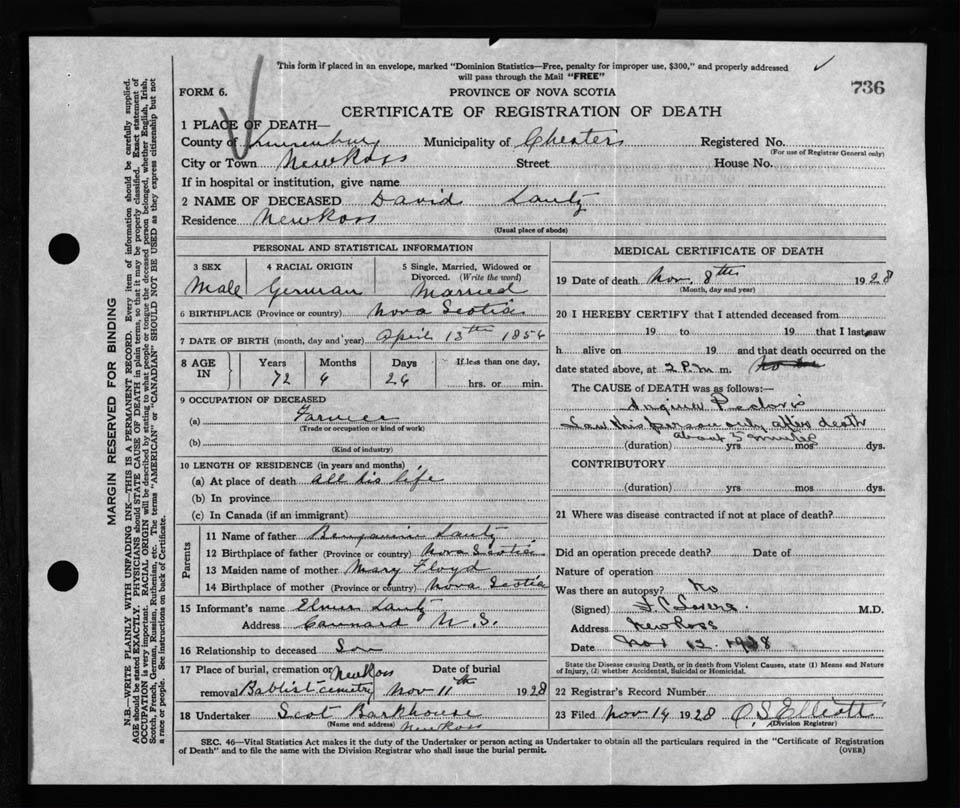 This form if placed in an envelope, marked "Dominion Statistics—Free, penalty for improper use, $300," and properly addressed
will pass through the Mail "FREE"
736
FORM 6.
PROVINCE OF NOVA SCOTIA
CERTIFICATE OF REGISTRATION OF DEATH
1 PLACE OF DEATH—
County of Lunenburg Municipality of Chester Registered No.
(For use of Registrar General only)
City or Town New Ross Street House No.
If in hospital or institution, give name
2 NAME OF DECEASED David Lantz
Residence New Ross
(Usual place of abode)
PERSONAL AND STATISTICAL INFORMATION
3 SEX 4 RACIAL ORIGIN 5 Single, Married, Widowed or
Divorced. (Write the word)
Male German Married
6 BIRTHPLACE (Province or country) Nova Scotia
7 DATE OF BIRTH (month, day and year) April 13th 1856
8 AGE IN Years Months Days If less than one day,
72 6 26 hrs. or min.
9 OCCUPATION OF DECEASED
(a) Farmer
(Trade or occupation or kind of work)
(b)
(Kind of industry)
10 LENGTH OF RESIDENCE (in years and months)
(a) At place of death all his life
(b) In province
(c) In Canada (if an immigrant)
Parents
11 Name of father Benjamin Lantz
12 Birthplace of father (Province or country) Nova Scotia
13 Maiden name of mother Mary Floyd
14 Birthplace of mother (Province or country) Nova Scotia
15 Informant's name Elmer Lantz
Address Cannard N.S.
16 Relationship to deceased Son
17 Place of burial, cremation or New Ross Date of burial
removal Babtist cemetry Nov 11th 1928
18 Undertaker Scot Barkhouse
(Name and address) New Ross
MEDICAL CERTIFICATE OF DEATH
19 Date of death Nov. 8th 1928
(Month, day and year)
20 I HEREBY CERTIFY that I attended deceased from
19 to 19 that I last saw
h alive on 19 and that death occurred on the
date stated above, at 2 P.m m.
The CAUSE of DEATH was as follows:—
Angina Pectoris
Saw this person only after death
about 5 minutes
(duration) yrs mos dys.
CONTRIBUTORY
(duration) yrs mos dys.
21 Where was disease contracted if not at place of death?
Did an operation precede death? Date of
Nature of operation
Was there an autopsy? No
(Signed) M.D.
Address New Ross
Date Nov 12. 1928
State the Disease causing Death, or in death from Violent Causes, state (1) Means and Nature
of Injury, (2) whether Accidental, Suicidal or Homicidal.
22 Registrar's Record Number
23 Filed Nov 14 1928 O. S. Elliott
(Division Registrar)
SEC. 46—Vital Statistics Act makes it the duty of the Undertaker or person acting as Undertaker to obtain all the particulars required in the "Certificate of Registration
of Death" and to file the same with the Division Registrar who shall issue the burial permit.
(OVER)
MARGIN RESERVED FOR BINDING
N.B.—WRITE PLAINLY WITH UNFADING INK—THIS IS A PERMANENT RECORD. Every item of information should be carefully supplied.
AGE should be stated EXACTLY. PHYSICIANS should STATE CAUSE OF DEATH in plain terms, so that it may be properly classified. Exact statement of
OCCUPATION is very important. RACIAL ORIGIN will be described by stating to what people or tongue the deceased person belonged, whether English, Irish,
Scotch, French, German, Russian, Ruthenian, etc. The terms "AMERICAN" or "CANADIAN" SHOULD NOT BE USED as they express citizenship but not
a race or people. See instructions on back of Certificate.